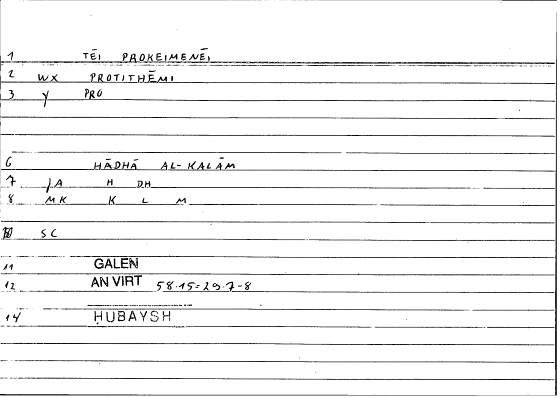 1 TĒI PROKEIMENĒI
2 WX PROTITHĒMI
3 Y PRO
6 HĀDHĀ AL-KALĀM
7 /A H DH
8 MK K L M
10 SC
11 GALEN
12 AN VIRT 58.15=29.7-8
14 ḤUBAYSH